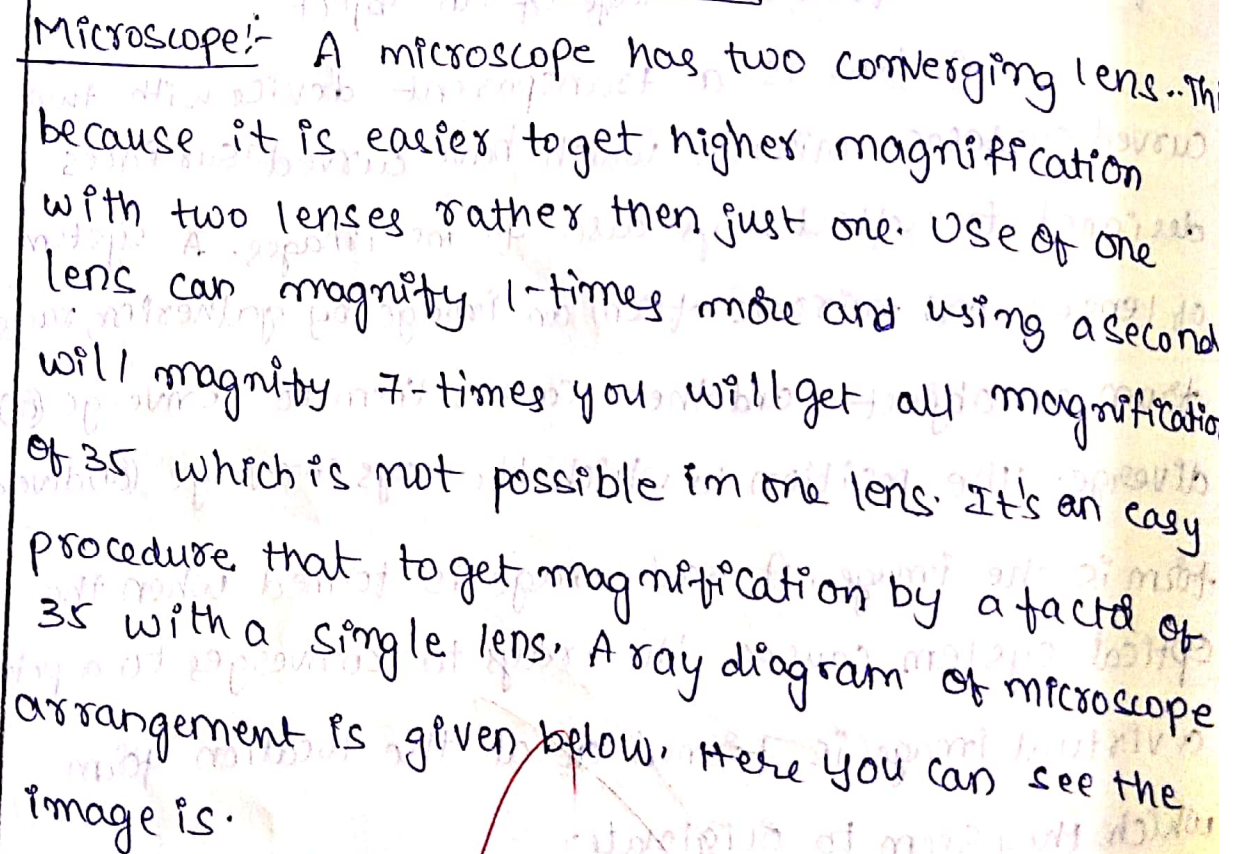 Microscope:- A microscope has two converging lens.. Thi
because it is easier to get higher magnification
with two lenses rather then just one. Use of one
lens can magnity 1-times more and using a second
will magnity 7-times you will get all magnificatio
of 35 which is not possible in one lens. It's an easy
procedure that to get magnification by a factd of
35 with a single lens. A ray diagram of microscope
arrangement is given below. Here you can see the
image is.